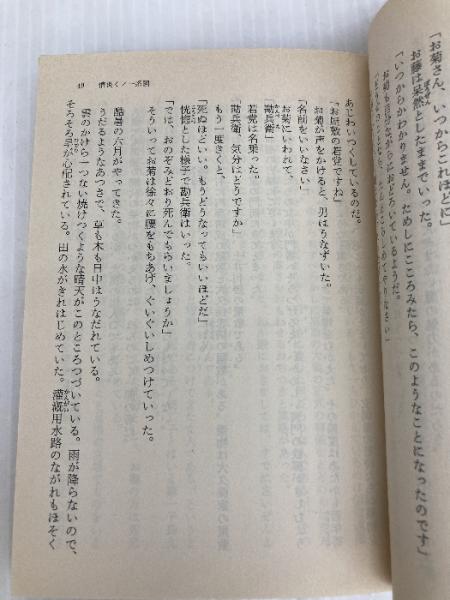 「お菊さん、いつからこれほどに」
お藤は呆然としたままでいった。
「いつからかわかりません。ためしにこころみたら、このようなことになったのです」
49
あじわいつくしているのだ。
「お屋敷の若党ですね」
お菊が声をかけると、男はうなずいた。
「名前をいいなさい」
お菊にいわれて、
「勘兵衛」
若党は名乗った。
「勘兵衛、気分はどうですか」
もう一度きくと、
「死ぬほどいい。もうどうなってもいいほどだ」
恍惚とした様子で勘兵衛はいった。
「では、おのぞみどおり死んでもらいましょうか」
そういってお菊は徐々に腰をもちあげ、ぐいぐいしめつけていった。
酷暑の六月がやってきた。
うだるようなあつさで、草も木も日中はうなだれている。
雲のかけら一つない焼けつくような晴天がこのところつづいている。雨が降らないので、
そろそろ旱が心配されている。田の水がきれはじめていた。灌漑用水路のながれもほそく